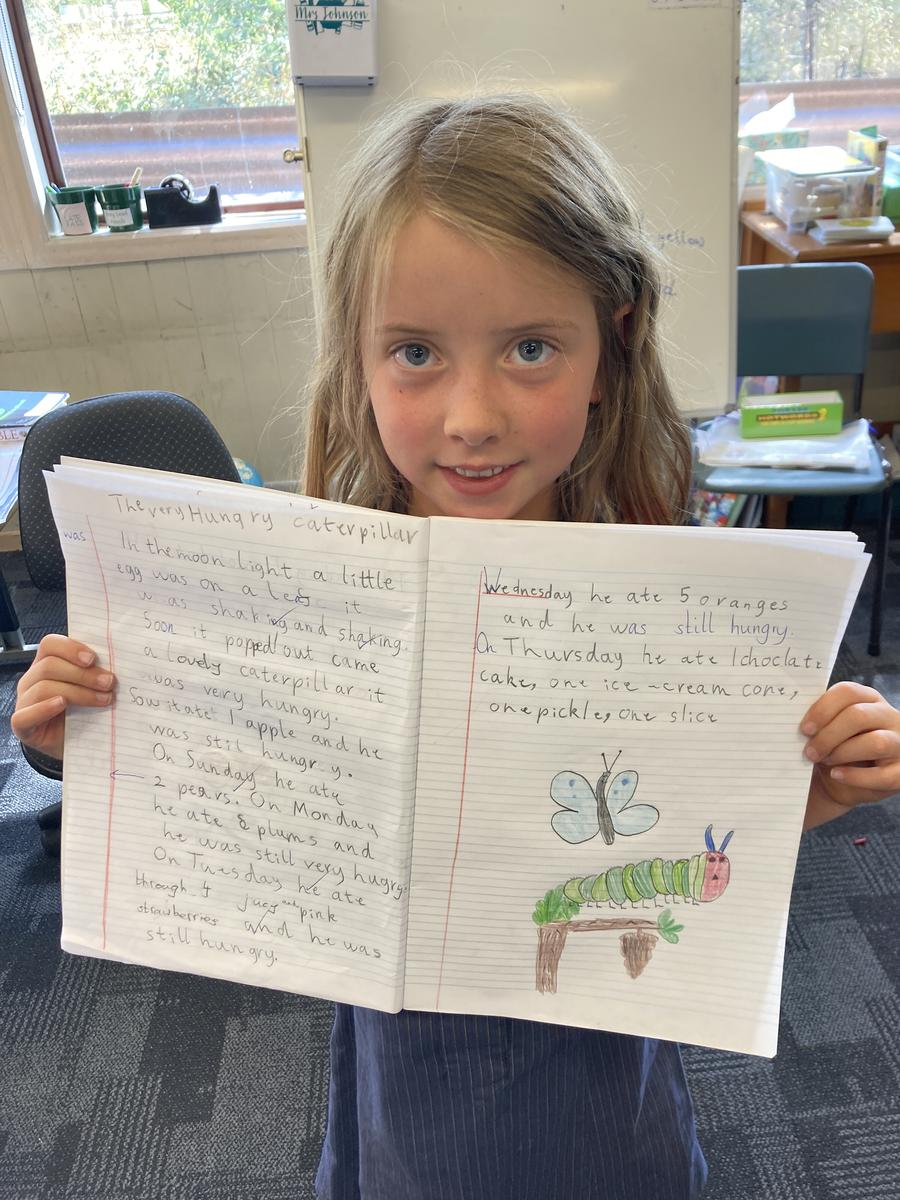 Mrs Johnson
yellow
The very Hungry caterpillar
was
In the moon light a little
egg was on a leaf it
was shaking and shaking.
Soon it popped out came
a lovely caterpillar it
was very hungry.
Sow it ate 1 apple and he
was still hungry.
On Sunday he ate
2 pears. On Monday
he ate 3 plums and
he was still very hugry.
On Tuesday he ate
through 4 juicy and pink
strawberries and he was
still hungry.
Wednesday he ate 5 oranges
and he was still hungry.
On Thursday he ate 1 choclate
cake, one ice-cream cone,
one pickle, one slice